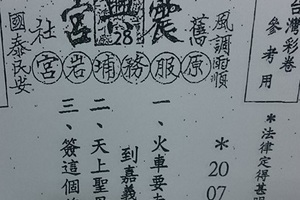 台灣彩卷
參考用
*法律定得甚
風調雨順
*2007
舊震
28
宮社
原服務埔岩宮
國泰民安
一、火車要
到嘉義
二、天上聖
三、簽這個